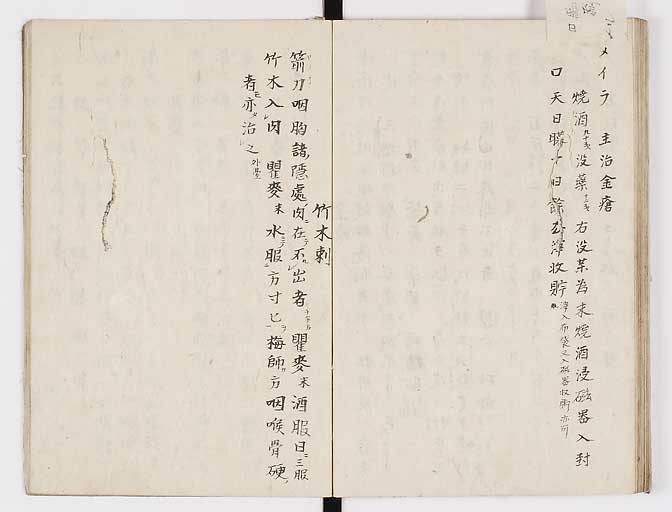 メイラ 主治金瘡
焼酒 没薬 右没薬為末焼酒浸磁器入封
口天日曝十日餘去滓收貯 滓入布袋又入磁器收貯亦可
竹木刺
箭刀咽胸諸隱處肉在不出者 瞿麥末酒服日三服
竹木入肉 瞿麥末水服方寸匕梅師方咽喉骨硬
者亦治之 外臺